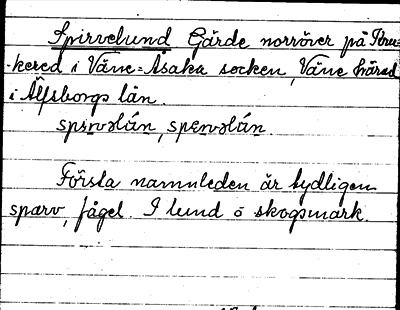 Spirrelund Gärde norröver på
-kered i Väne-Åsaka socken, Väne härad
i Älfsborgs län.
spɪrvəlún, spɛrvəlún.
Första namnleden är tydligen
sparv, fågel. I lund o skogsmark.